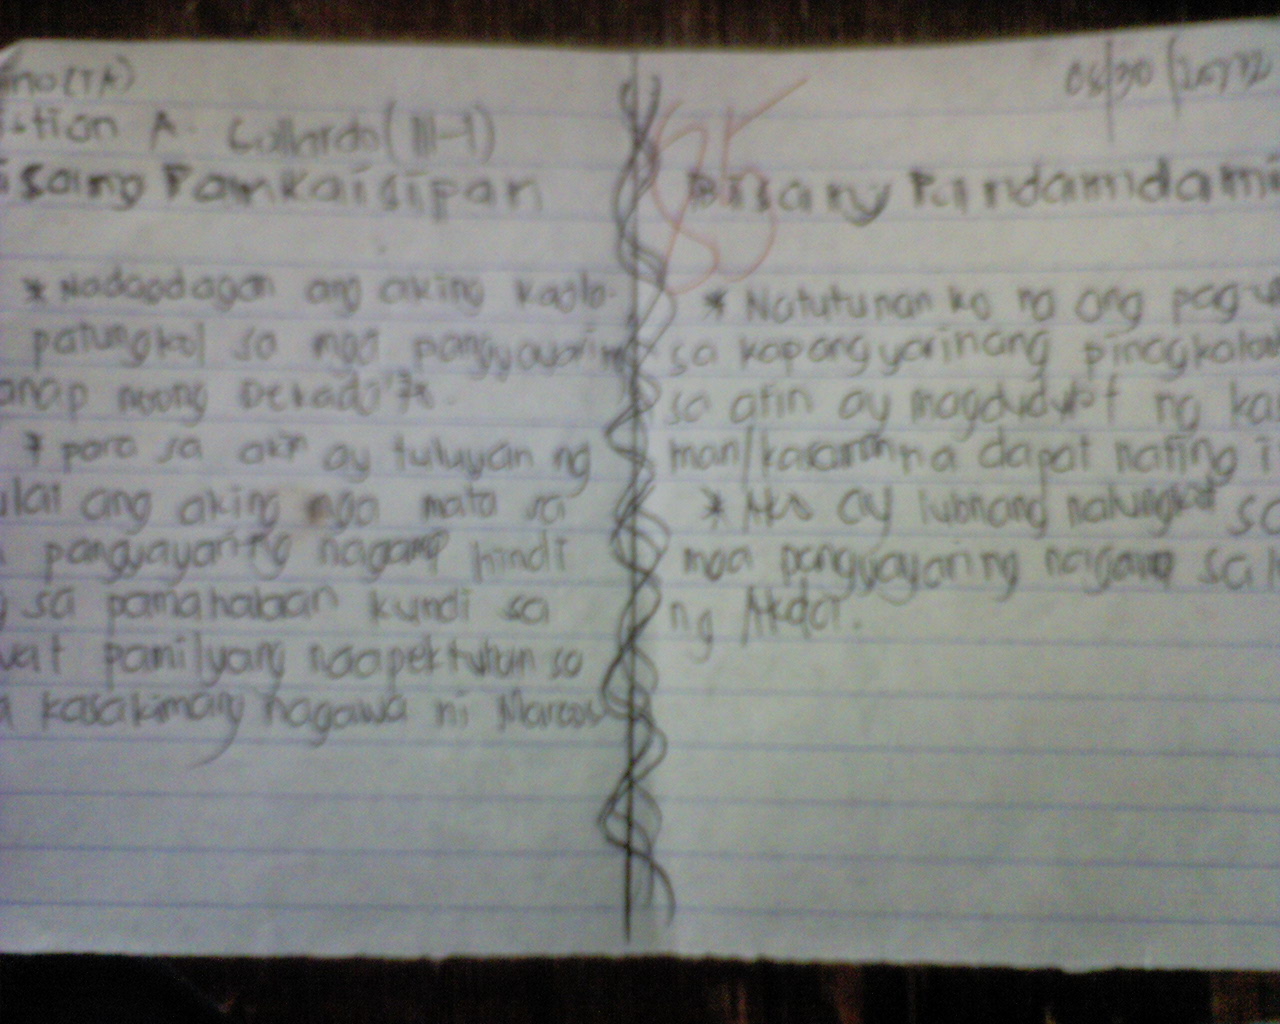 ino(TA)
stian A. Collardo (III-1)
isang Pamkaisipan
* Nadagdagan ang aking kaala-
patungkol sa mga pangyayaring
anap noong Dekada '7x.
* para sa akin ay tuluyan ng
ulat ang aking mga mata sa
a pangyayaring naganap hindi
g sa pamahalaan kundi sa
wat pamilyang naapektuhan sa
a kasakimang nagawa ni Marcos
85
08/30/2012
Bisang Pandamdami
* Natutunan ko na ang pag-u
sa kapangyarihang pinagkaloob
sa atin ay magdudulot ng ka
man/kasarinlan na dapat nating i
* Ako ay lubhang nalungkot sa
mga pangyayaring naganap sa l
ng Akda.